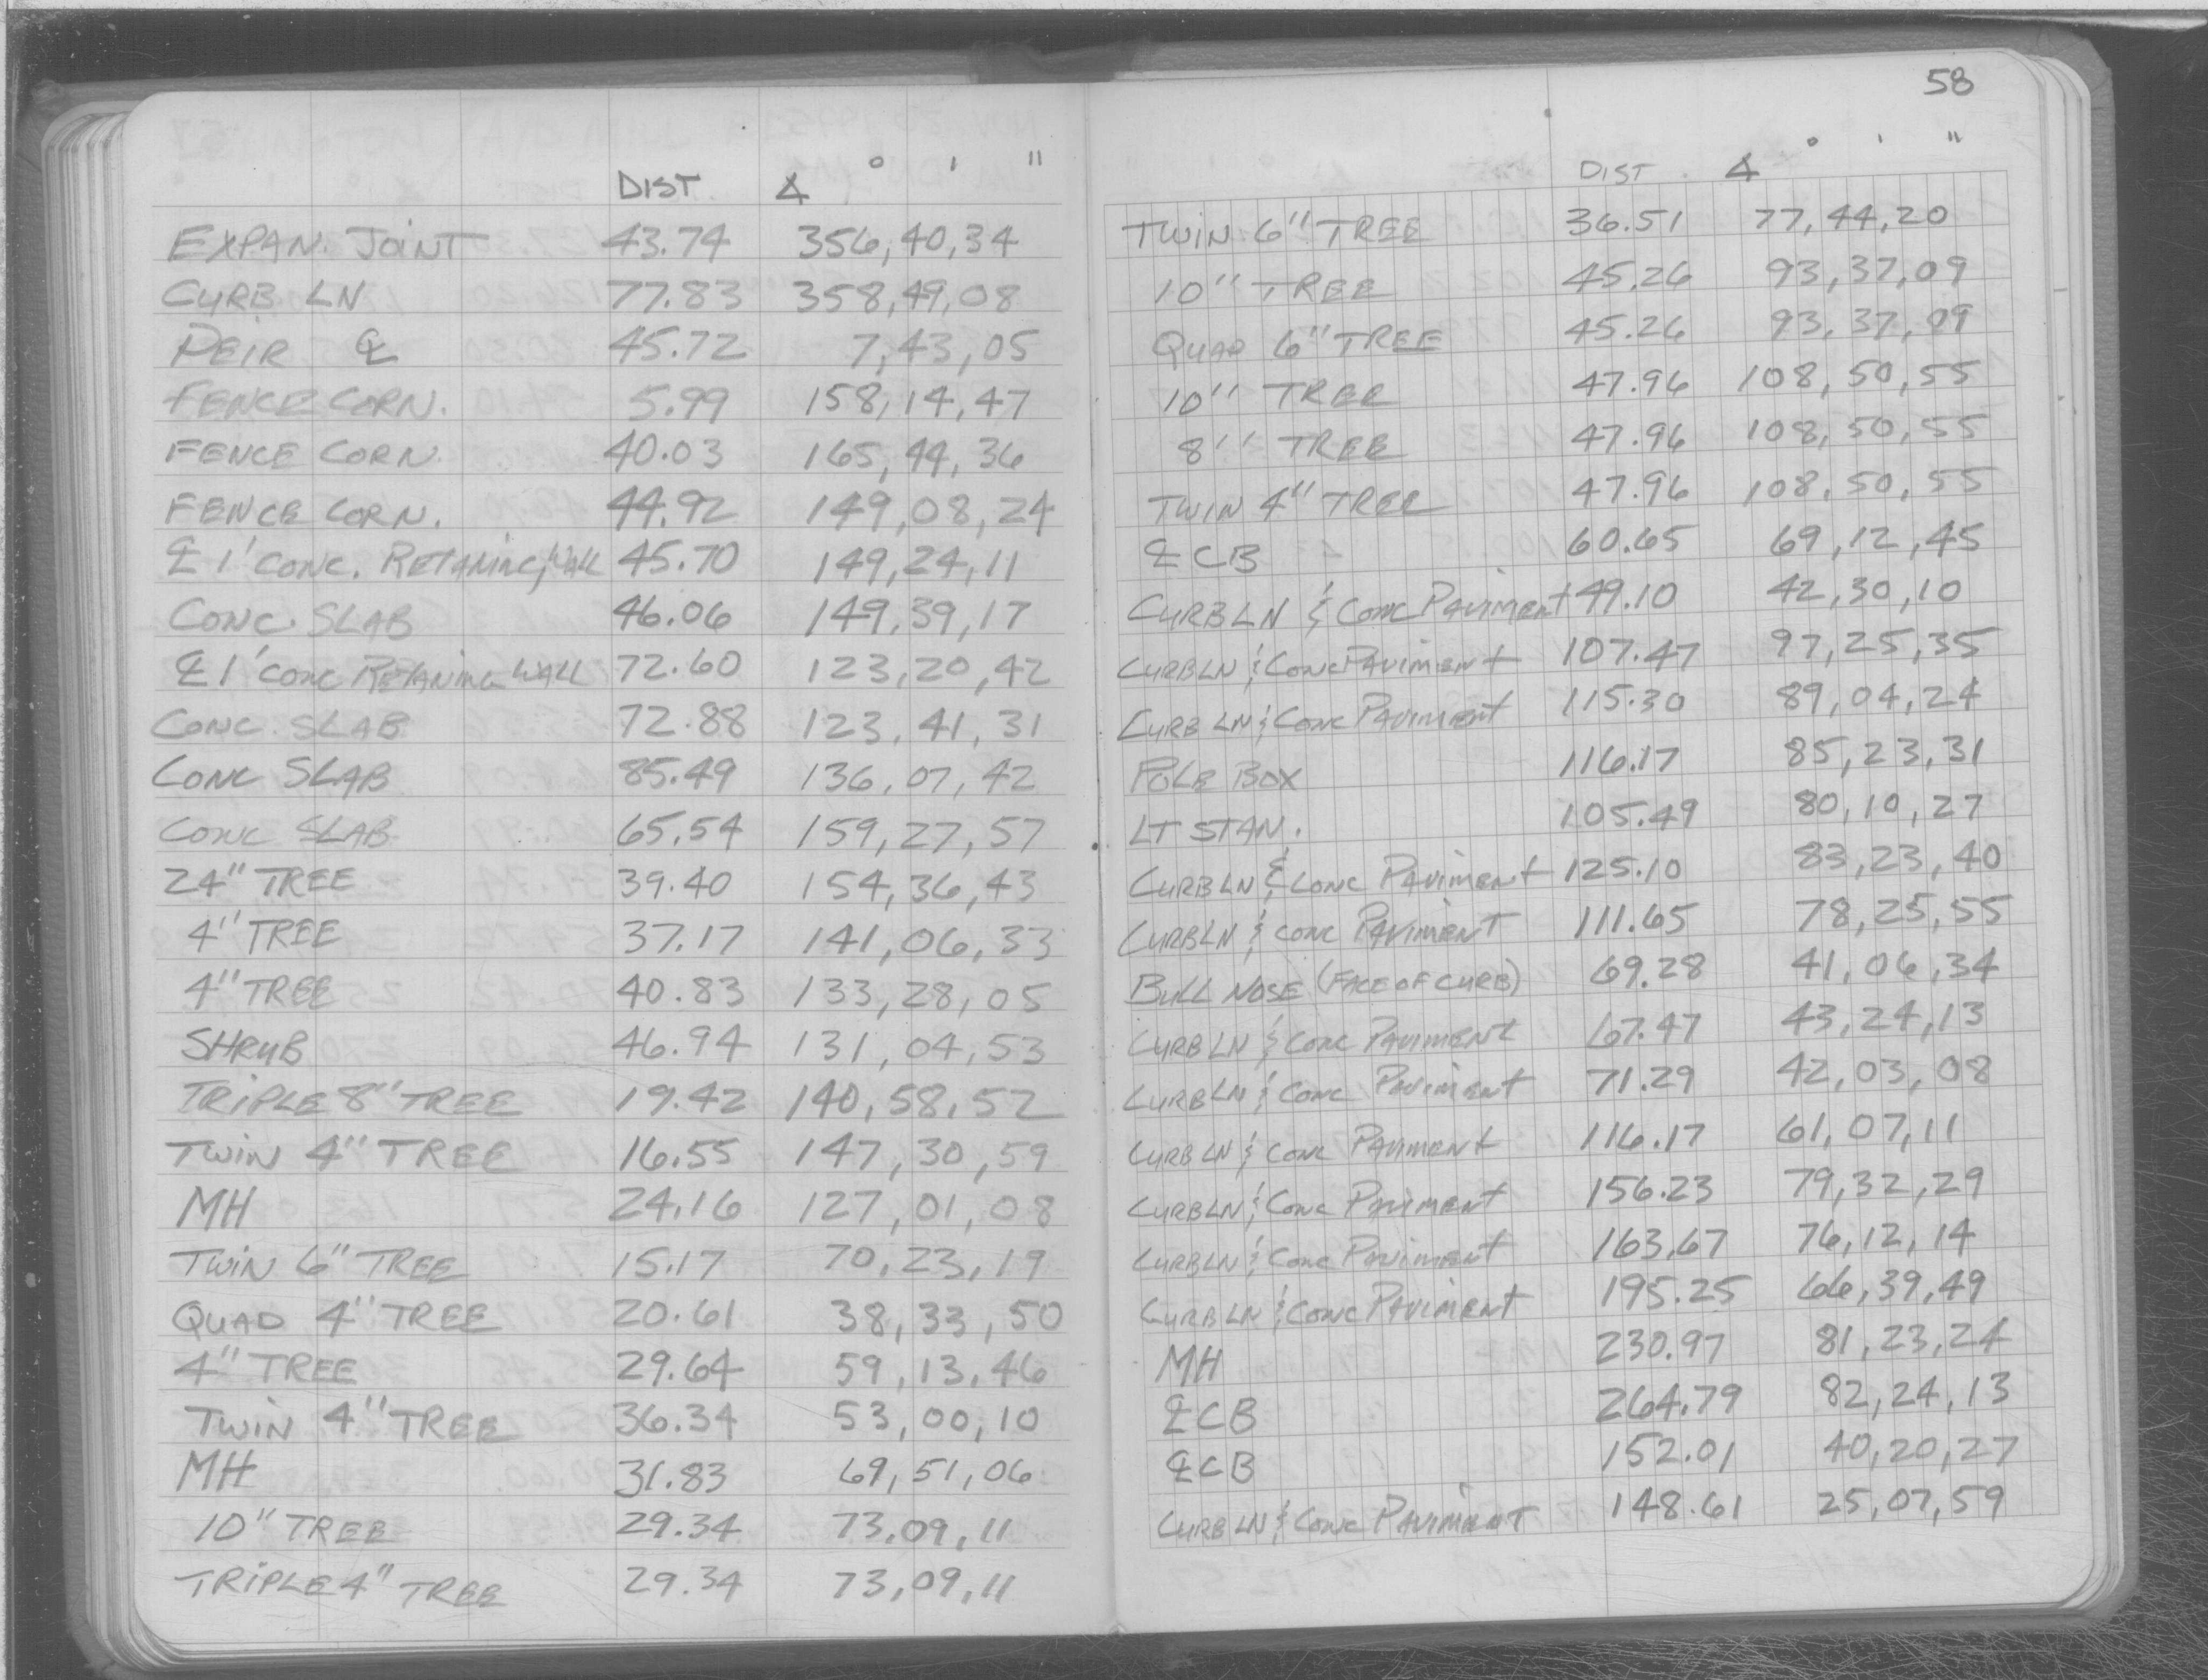 DIST ∡ ° ' "
EXPAN. JOINT 43.74 356,40,34
CURB LN 77.83 358,49,08
PEIR ℄ 45.72 7,43,05
FENCE CORN. 5.99 158,14,47
FENCE CORN. 40.03 165,44,36
FENCE CORN. 44.92 149,08,24
℄ 1' CONC. RETAINING WALL 45.70 149,24,11
CONC. SLAB 46.06 149,39,17
℄ 1' CONC RETANING WALL 72.60 123,20,42
CONC. SLAB 72.88 123,41,31
CONC SLAB 85.49 136,07,42
CONC SLAB 65.54 159,27,57
24" TREE 39.40 154,36,43
4" TREE 37.17 141,06,33
4" TREE 40.83 133,28,05
SHRUB 46.94 131,04,53
TRIPLE 8" TREE 19.42 140,58,52
TWIN 4" TREE 16.55 147,30,59
MH 24.16 127,01,08
TWIN 6" TREE 15.17 70,23,19
QUAD 4" TREE 20.61 38,33,50
4" TREE 29.64 59,13,46
TWIN 4" TREE 36.34 53,00,10
MH 31.83 69,51,06
10" TREE 29.34 73,09,11
TRIPLE 4" TREE 29.34 73,09,11
58
DIST ∡ ° ' "
TWIN 6" TREE 36.51 77,44,20
10" TREE 45.26 93,37,09
QUAD 6" TREE 45.26 93,37,09
10" TREE 47.96 108,50,55
8" TREE 47.96 108,50,55
TWIN 4" TREE 47.96 108,50,55
℄ CB 60.65 69,12,45
CURB LN & CONC PAVIMENT 49.10 42,30,10
CURB LN & CONC PAVIMENT 107.47 97,25,35
CURB LN & CONC PAVIMENT 115.30 89,04,24
POLE BOX 116.17 85,23,31
LT STAN. 105.49 80,10,27
CURB LN & CONC PAVIMENT 125.10 83,23,40
CURB LN & CONC PAVIMENT 111.65 78,25,55
BULL NOSE (FACE OF CURB) 69.28 41,06,34
CURB LN & CONC PAVIMENT 67.47 43,24,13
CURB LN & CONC PAVIMENT 71.29 42,03,08
CURB LN & CONC PAVIMENT 116.17 61,07,11
CURB LN & CONC PAVIMENT 156.23 79,32,29
CURB LN & CONC PAVIMENT 163.67 76,12,14
CURB LN & CONC PAVIMENT 195.25 66,39,49
MH 230.97 81,23,24
℄ CB 264.79 82,24,13
℄ CB 152.01 40,20,27
CURB LN & CONC PAVIMENT 148.61 25,07,59